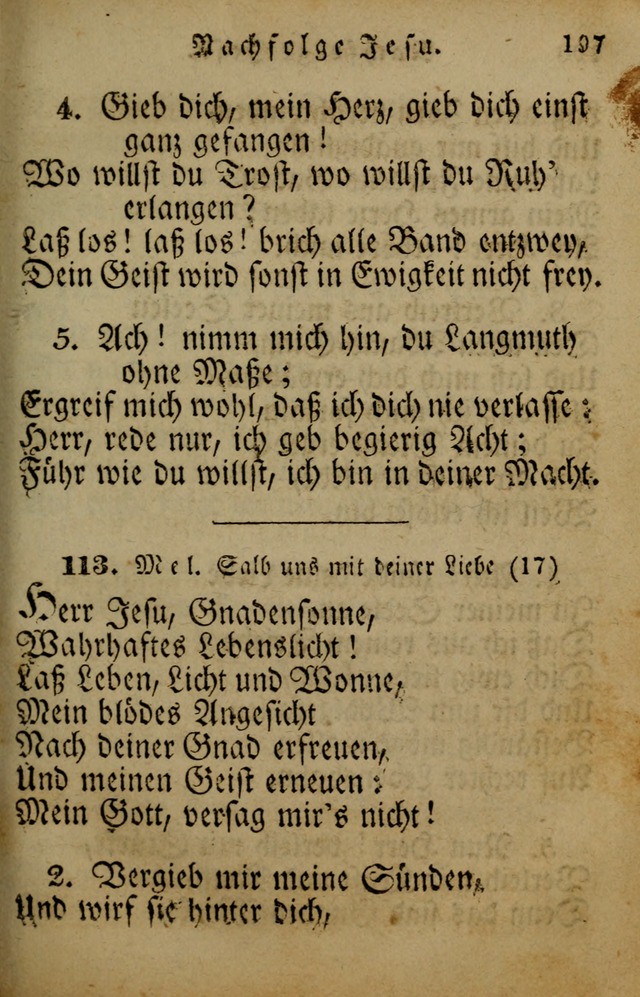 Nachfolge Jesu. 197
4. Gieb dich, mein Herz, gieb dich einst
ganz gefangen!
Wo willst du Trost, wo willst du Ruh'
erlangen?
Laß los! laß los! brich alle Band entzwey,
Dein Geist wird sonst in Ewigkeit nicht frey.
5. Ach! nimm mich hin, du Langmuth
ohne Maße;
Ergreif mich wohl, daß ich dich nie verlasse:
Herr, rede nur, ich geb begierig Acht;
Führ wie du willst, ich bin in deiner Macht.
113. Mel. Salb uns mit deiner Liebe (17)
Herr Jesu, Gnadensonne,
Wahrhaftes Lebenslicht!
Laß Leben, Licht und Wonne,
Mein blödes Angesicht
Nach deiner Gnad erfreuen,
Und meinen Geist erneuen:
Mein Gott, versag mir's nicht!
2. Vergieb mir meine Sünden,
Und wirf sie hinter dich,